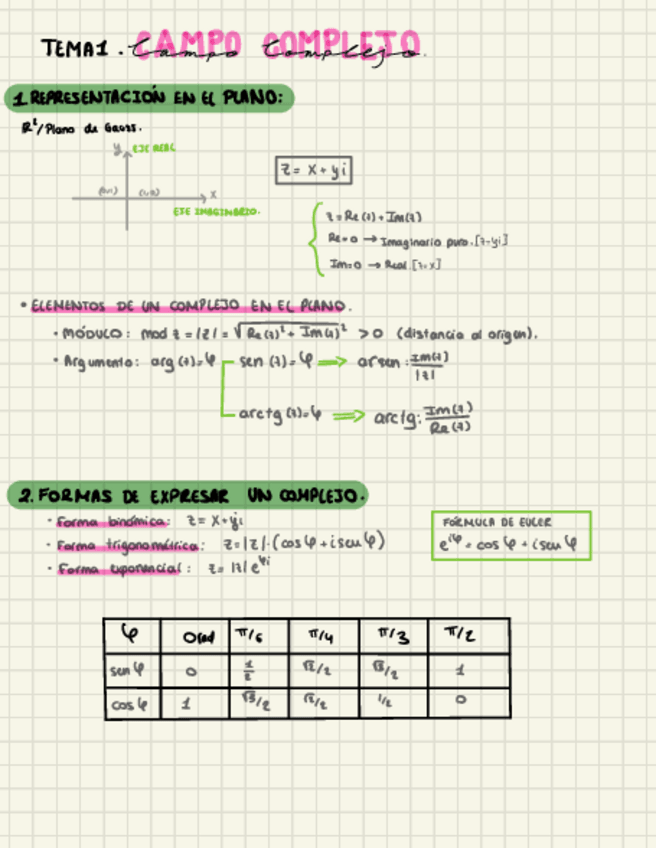 TEMA1. CAMPO COMPLEJO
Campo Complejo.
1. REPRESENTACIÓN EN EL PLANO:
R²/Plano de Gauss.
y EJE REAL
z = x + yi
x
EJE IMAGINARIO.
z = Re(z) + Im(z)
Re=0 → Imaginario puro. [z=yi]
Im=0 → Real [z=x]
• ELEMENTOS DE UN COMPLEJO EN EL PLANO.
• MÓDULO: mod z = |z| = √Re(z)² + Im(z)² >0 (distancia al origen).
• Argumento: arg(z)=φ sen(z)=φ ⇒ arsen: Im(z)/|z|
arctg(z)=φ ⇒ arctg: Im(z)/Re(z)
2. FORMAS DE EXPRESAR UN COMPLEJO.
• Forma binómica: z = x+yi
• Forma trigonométrica: z=|z|·(cosφ+isenφ)
• Forma exponencial: z= |z|e^φi
FÓRMULA DE EULER
e^iφ = cosφ + isenφ
φ 0rad π/6 π/4 π/3 π/2
senφ 0 1/2 √2/2 √3/2 1
cosφ 1 √3/2 √2/2 1/2 0